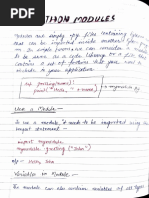 PYTHON MODULES
Modules are simply .py files containing
that can be imported inside another
In simple terms, we can consider a module
to be same as a code library or a file that
contains a set of functions that you want to
include in your application
def greeting(name):
print("Hello, " + name)
Use a Module -
To use a module, it needs to be imported using the
import statement
import mymodule
mymodule.greeting("John")
o/p - Hello, John
Variables in Module -
The module can also contain variables of all types